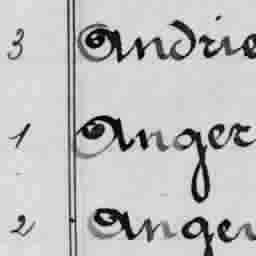 3 Andrie
1 Anger
2 Ange